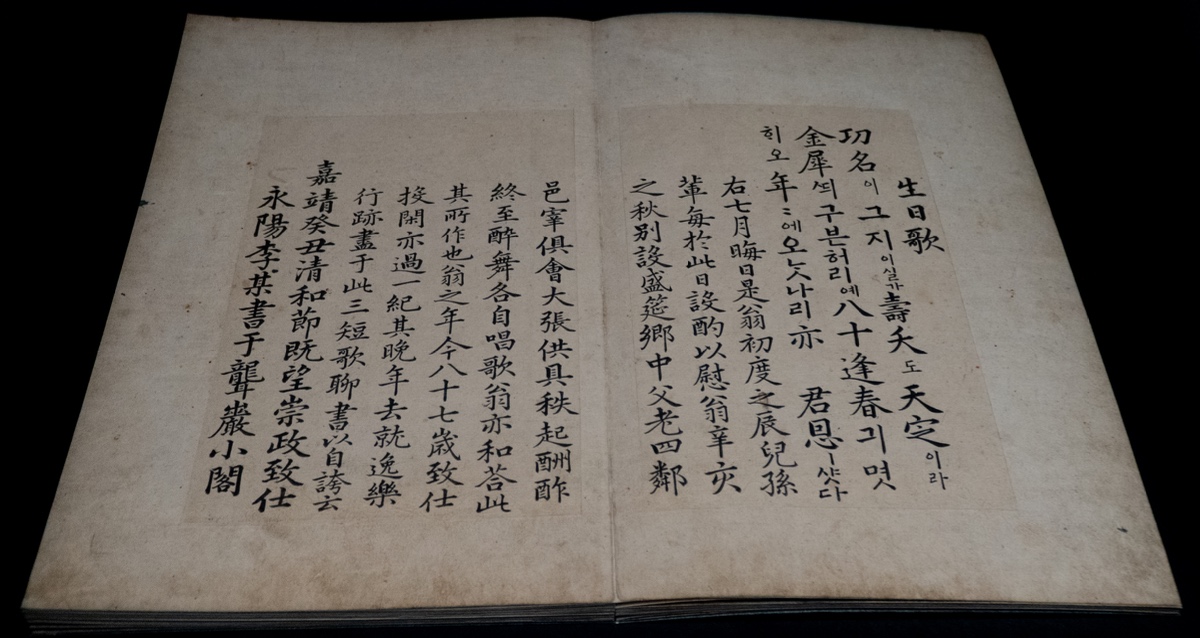 生日歌
功名이 그지이실가 壽夭도 天定이라
金犀ᄯᅴ 구븐허리예 八十逢春긔 몃
ᄒᆡ오 年〻에 오ᄂᆞᆺ나리 亦 君恩이샷다
右七月晦日是翁初度之辰兒孫
軰每於此日設酌以慰翁辛亥
之秋別設盛筵鄉中父老四鄰
邑宰俱會大張供具秩起酬酢
終至醉舞各自唱歌翁亦和荅此
其所作也翁之年今八十七歲致仕
投閑亦過一紀其晚年去就逸樂
行跡盡于此三短歌聊書以自誇云
嘉靖癸丑清和節既望崇政致仕
永陽李某書于聾巖小閣